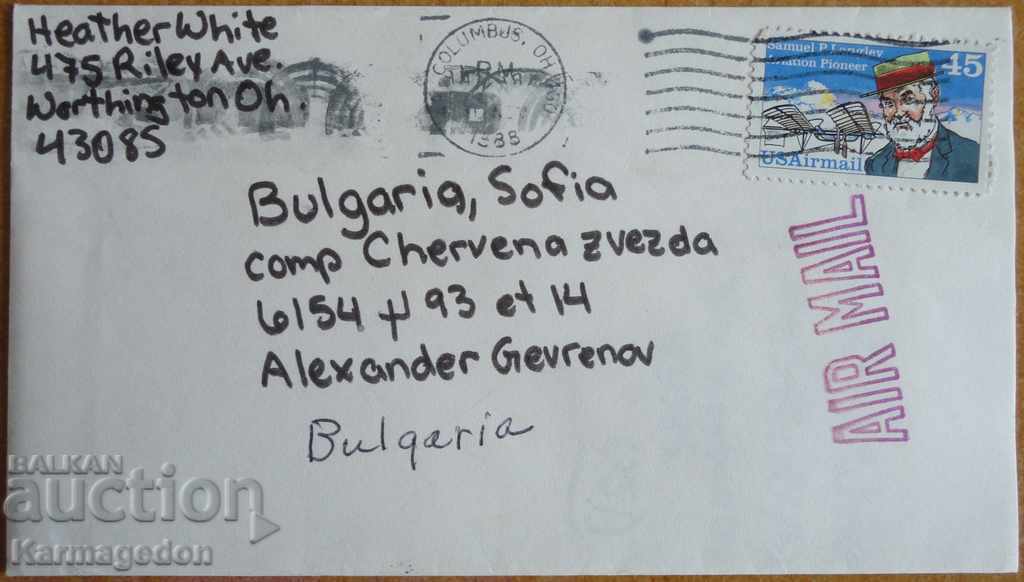 Heather White
475 Riley Ave.
Worthington Oh.
43085
COLUMBUS, OH
PM
1988
Samuel P. Langley
Aviation Pioneer
45
USAirmail
AIR MAIL
Bulgaria, Sofia
comp Chervena zvezda
6154 93 et 14
Alexander Gevrenov
Bulgaria
BALKAN
auction
Karmagedon